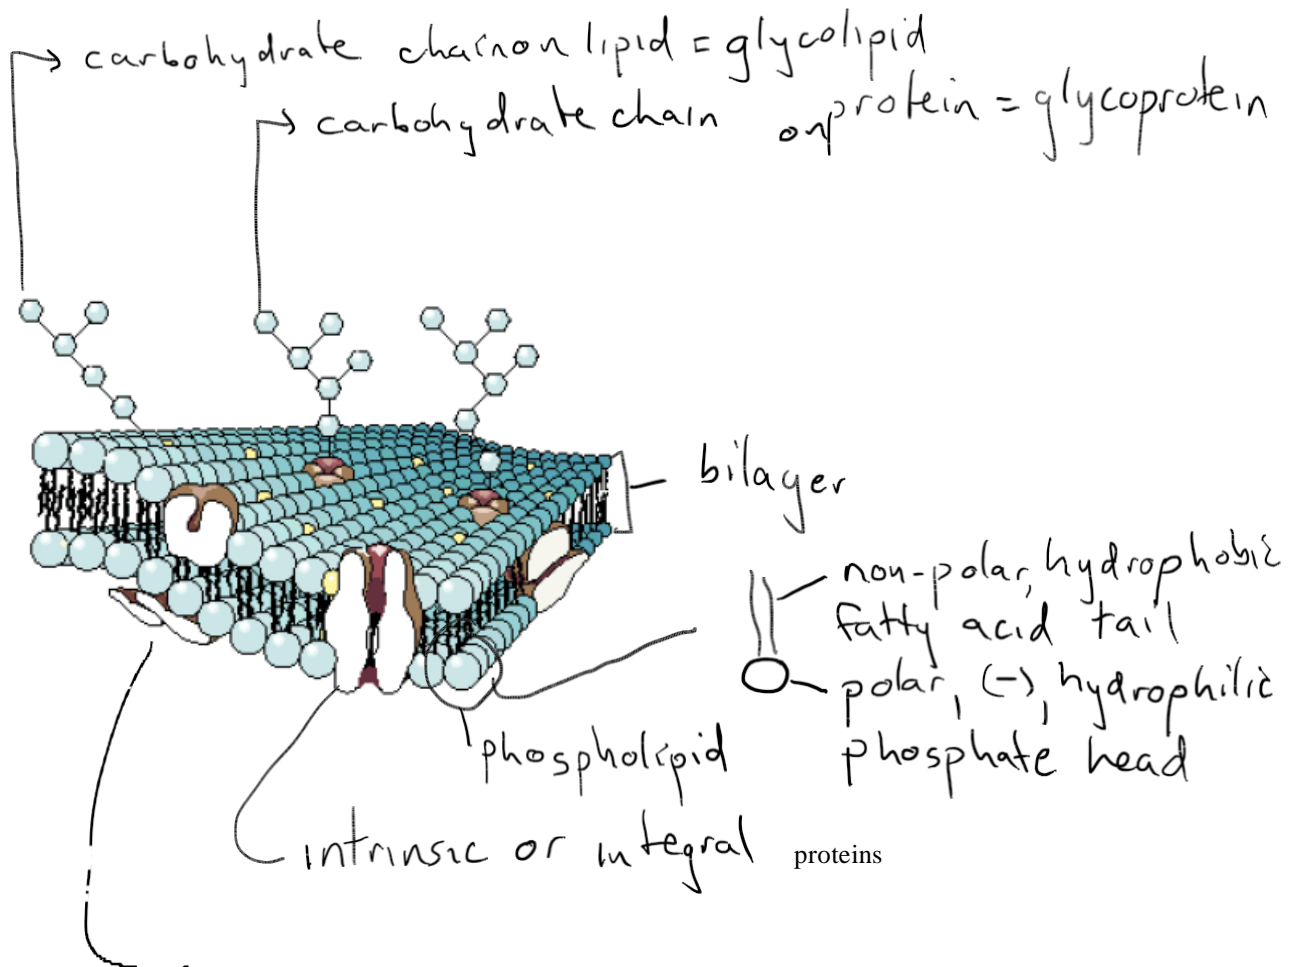 carbohydrate chain on lipid = glycolipid
carbohydrate chain on protein = glycoprotein
bilayer
non-polar, hydrophobic
fatty acid tail
polar, (-), hydrophilic
phosphate head
phospholipid
intrinsic or integral proteins